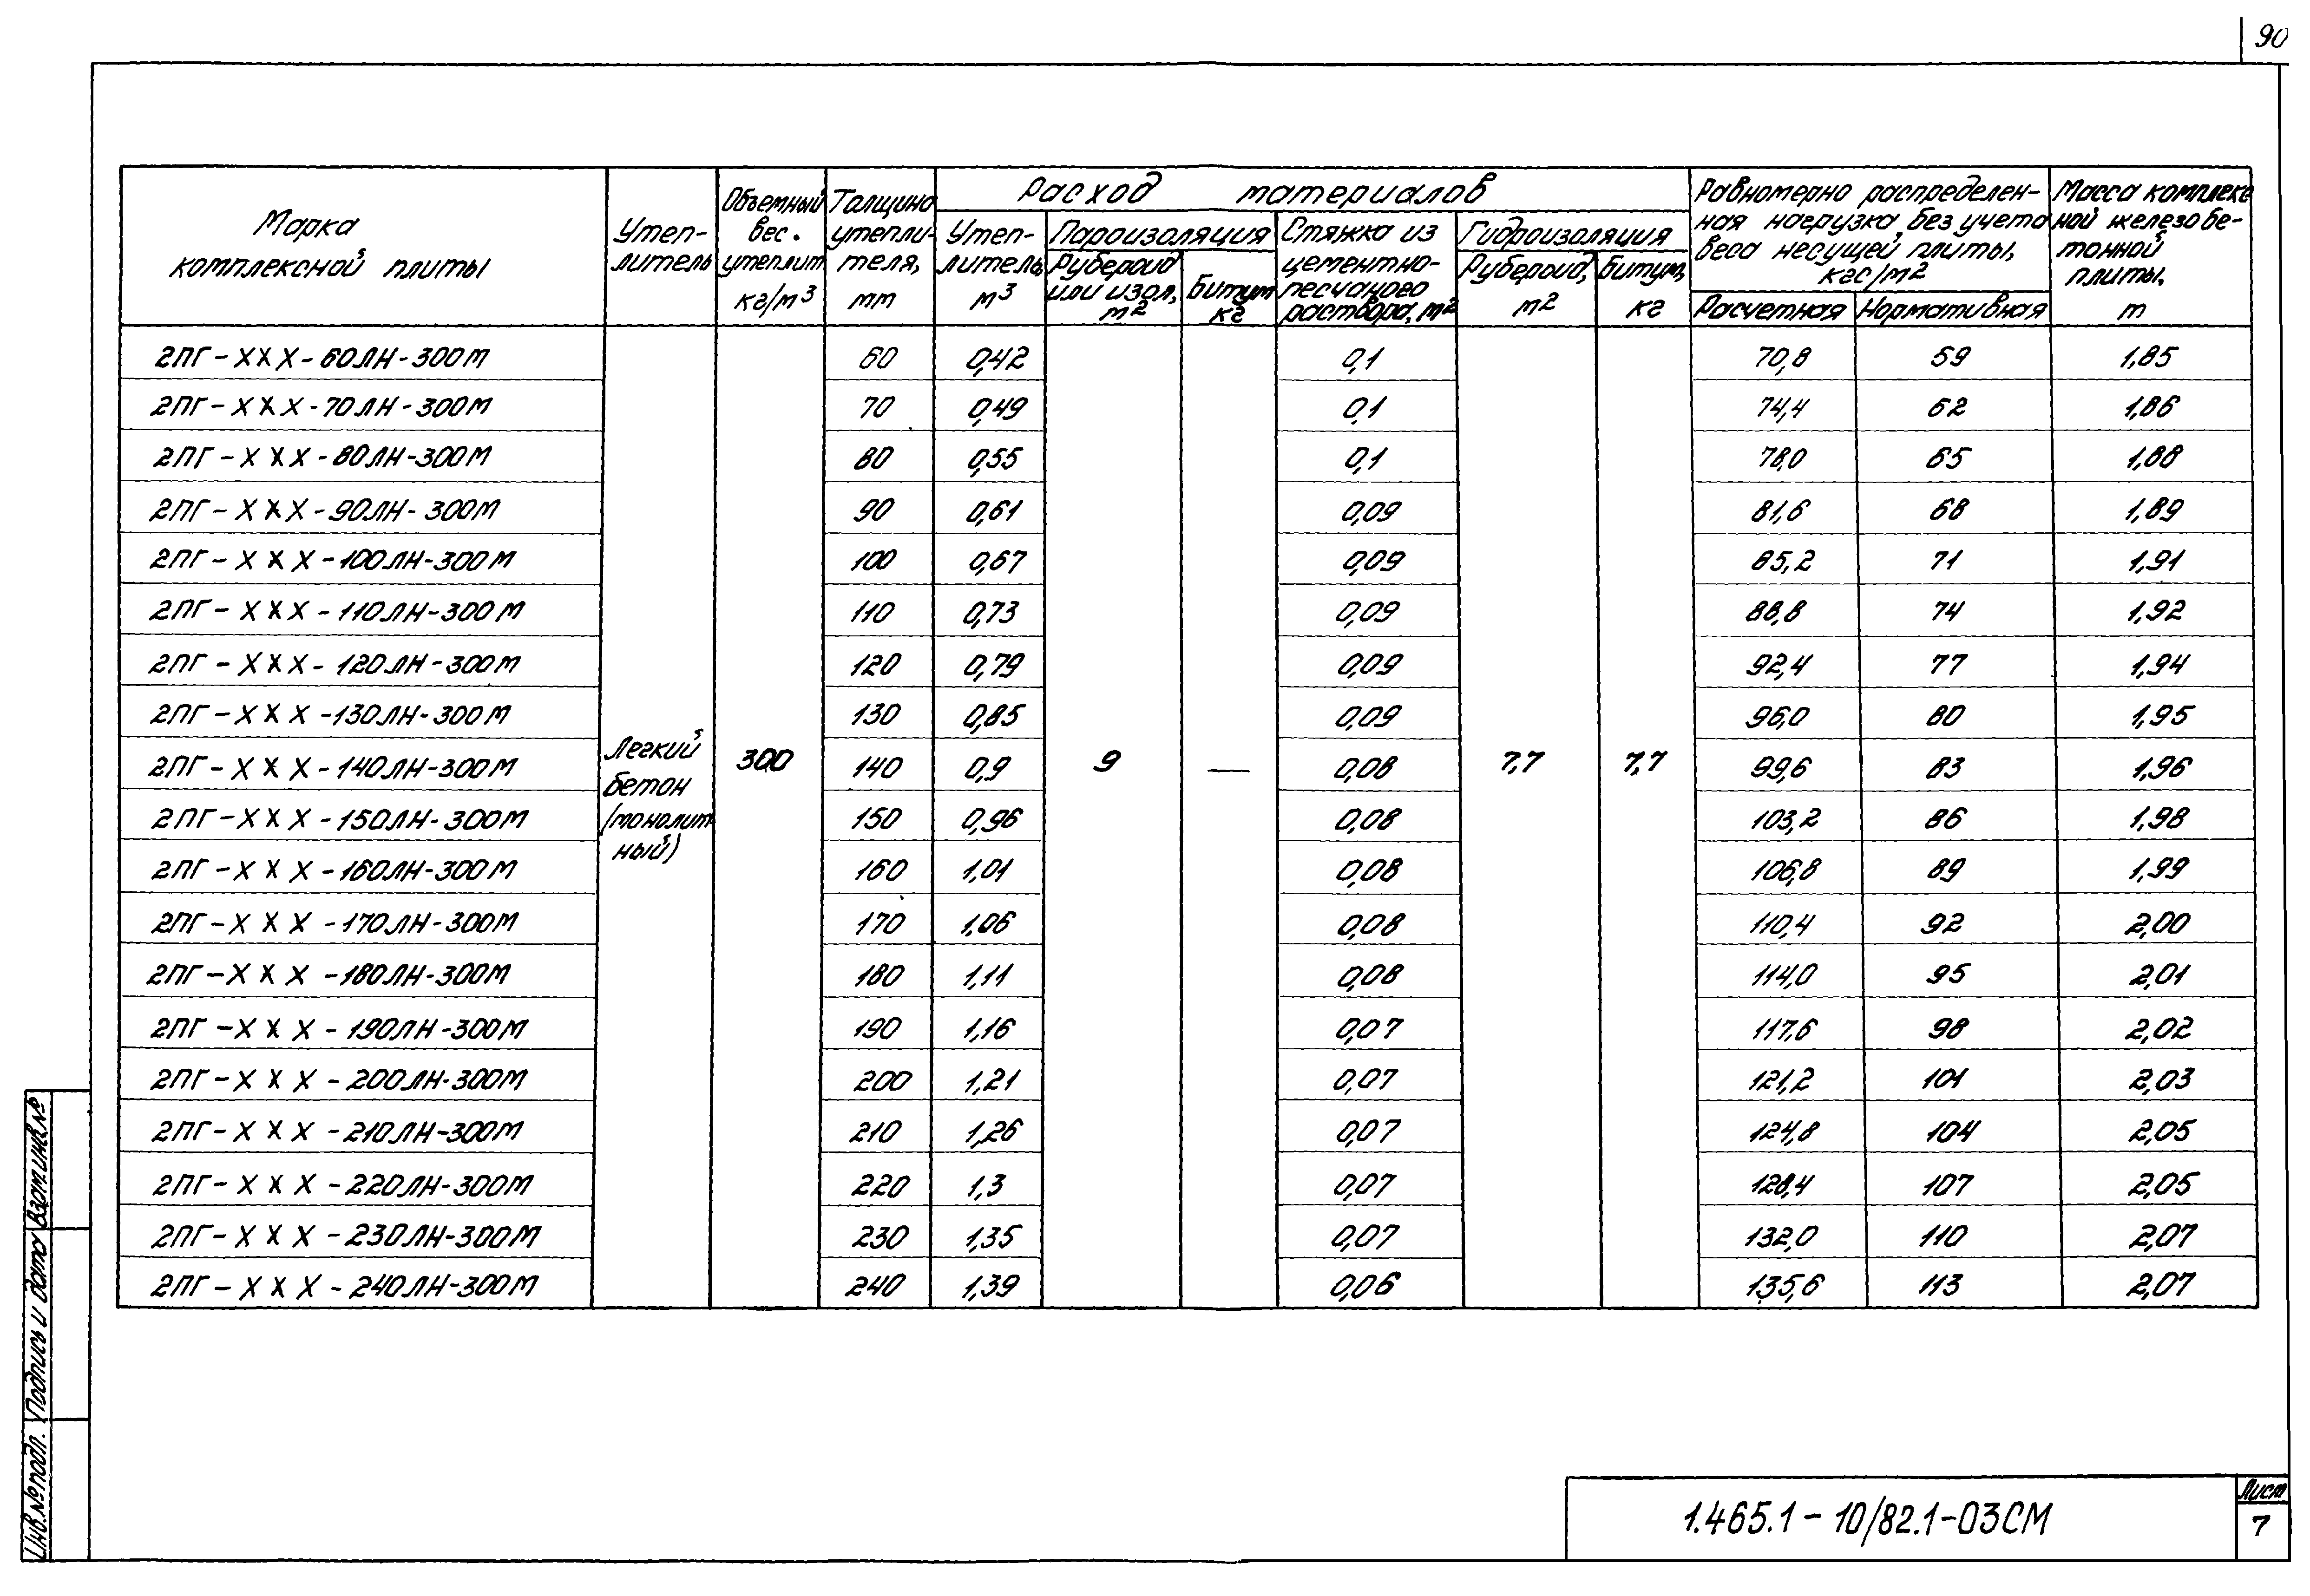 90
Марка комплексной плиты
Утеп-
литель
Объемный вес. утеплит кг/м³
Толщина утепли-
теля, мм
Расход материалов
Утеп-
литель, м³
Пароизоляция
Рубероид или изол, м²
Битум кг
Стяжка из цементно-
песчаного раствора, м²
Гидроизоляция
Рубероид, м²
Битум, кг
Равномерно распределен-
ная нагрузка без учета веса несущей плиты, кгс/м²
Расчетная Нормативная
Масса комплекс
ной железобе-
тонной плиты, т
2ПГ-ХХХ-60ЛН-300М 60 0,42 0,1 70,8 59 1,85
2ПГ-ХХХ-70ЛН-300М 70 0,49 0,1 74,4 62 1,86
2ПГ-ХХХ-80ЛН-300М 80 0,55 0,1 78,0 65 1,88
2ПГ-ХХХ-90ЛН-300М 90 0,61 0,09 81,6 68 1,89
2ПГ-ХХХ-100ЛН-300М 100 0,67 0,09 85,2 71 1,91
2ПГ-ХХХ-110ЛН-300М 110 0,73 0,09 88,8 74 1,92
2ПГ-ХХХ-120ЛН-300М 120 0,79 0,09 92,4 77 1,94
2ПГ-ХХХ-130ЛН-300М 130 0,85 0,09 96,0 80 1,95
2ПГ-ХХХ-140ЛН-300М Легкий бетон (монолит
ный) 300 140 0,9 9 — 0,08 7,7 7,7 99,6 83 1,96
2ПГ-ХХХ-150ЛН-300М 150 0,96 0,08 103,2 86 1,98
2ПГ-ХХХ-160ЛН-300М 160 1,01 0,08 106,8 89 1,99
2ПГ-ХХХ-170ЛН-300М 170 1,06 0,08 110,4 92 2,00
2ПГ-ХХХ-180ЛН-300М 180 1,11 0,08 114,0 95 2,01
2ПГ-ХХХ-190ЛН-300М 190 1,16 0,07 117,6 98 2,02
2ПГ-ХХХ-200ЛН-300М 200 1,21 0,07 121,2 101 2,03
2ПГ-ХХХ-210ЛН-300М 210 1,26 0,07 124,8 104 2,05
2ПГ-ХХХ-220ЛН-300М 220 1,3 0,07 128,4 107 2,05
2ПГ-ХХХ-230ЛН-300М 230 1,35 0,07 132,0 110 2,07
2ПГ-ХХХ-240ЛН-300М 240 1,39 0,06 135,6 113 2,07
Инв.№подл. Подпись и дата Взам.инв.№
1.465.1-10/82.1-03СМ
Лист
7